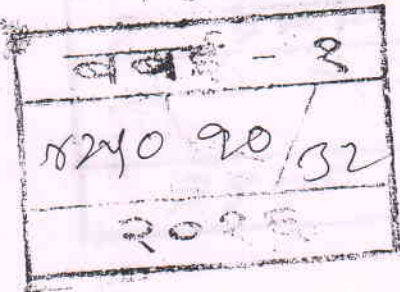 बबई - १
४२५० १०/३२
२०१६